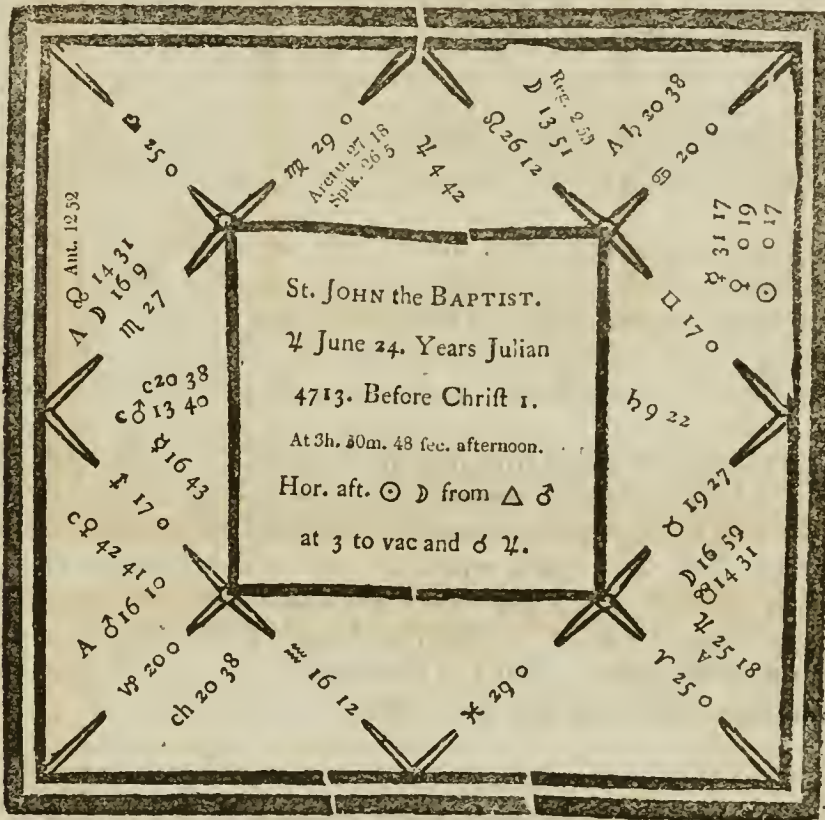 St. JOHN the BAPTIST.
♃ June 24. Years Julian
4713. Before Chriſt 1.
At 3h. 30m. 48 ſec. afternoon.
Hor. aft. ☉ ☽ from △ ♂
at 3 to vac and ☌ ♃.
♎ 25 0
♍ 29 0
Arctu. 27 18
Spik. 26 5
♃ 4 42
Reg. 2 53
☽ 13 51
♌ 26 12
Λ ♄ 20 38
♋ 20 0
☿ 31 17
♀ 0 19
☉ 0 17
♊ 17 0
♄ 9 22
♉ 19 27
☽ 16 59
☋ 14 31
♃ 25 18
A
♈ 25 0
♓ 29 0
♒ 16 12
ch 20 38
♑ 20 0
A ♂ 16 10
c ♀ 42 41 0
♐ 17 0
☿ 16 43
c ♂ 13 40
c 20 38
♏ 27
Λ ☽ 16 9
☊ 14 31
Ant. 12 52